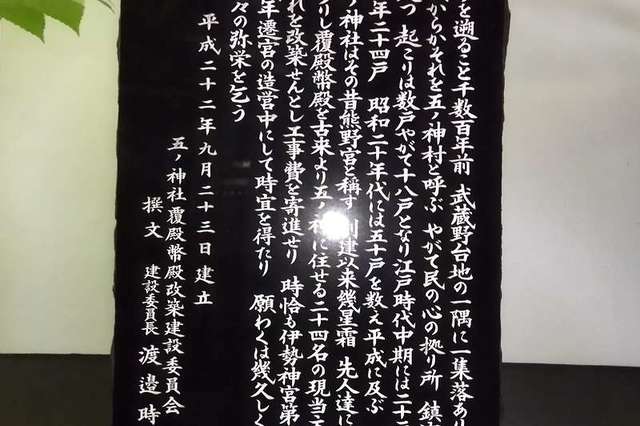 を遡ること千数百年前 武蔵野台地の一隅に一集落あり
からかそれを五ノ神村と呼ぶ やがて民の心の拠り所 鎮
つ 起こりは数戸やがて十八戸となり江戸時代中期には二十
年二十四戸 昭和二十年代には五十戸を数え平成に及ぶ
ノ神社はその昔熊野宮と称す 創建以来幾星霜 先人達に
りし覆殿幣殿を古来より五ノ神に住せる二十四名の現当
れを改築せんとし工事費を寄進せり 時恰も伊勢神宮第
年遷宮の造営中にして時宜を得たり 願わくは幾久しく
々の弥栄を乞う
平成二十二年九月二十三日建立
五ノ神社覆殿幣殿改築建設委員会
撰文 建設委員長 渡邉 時